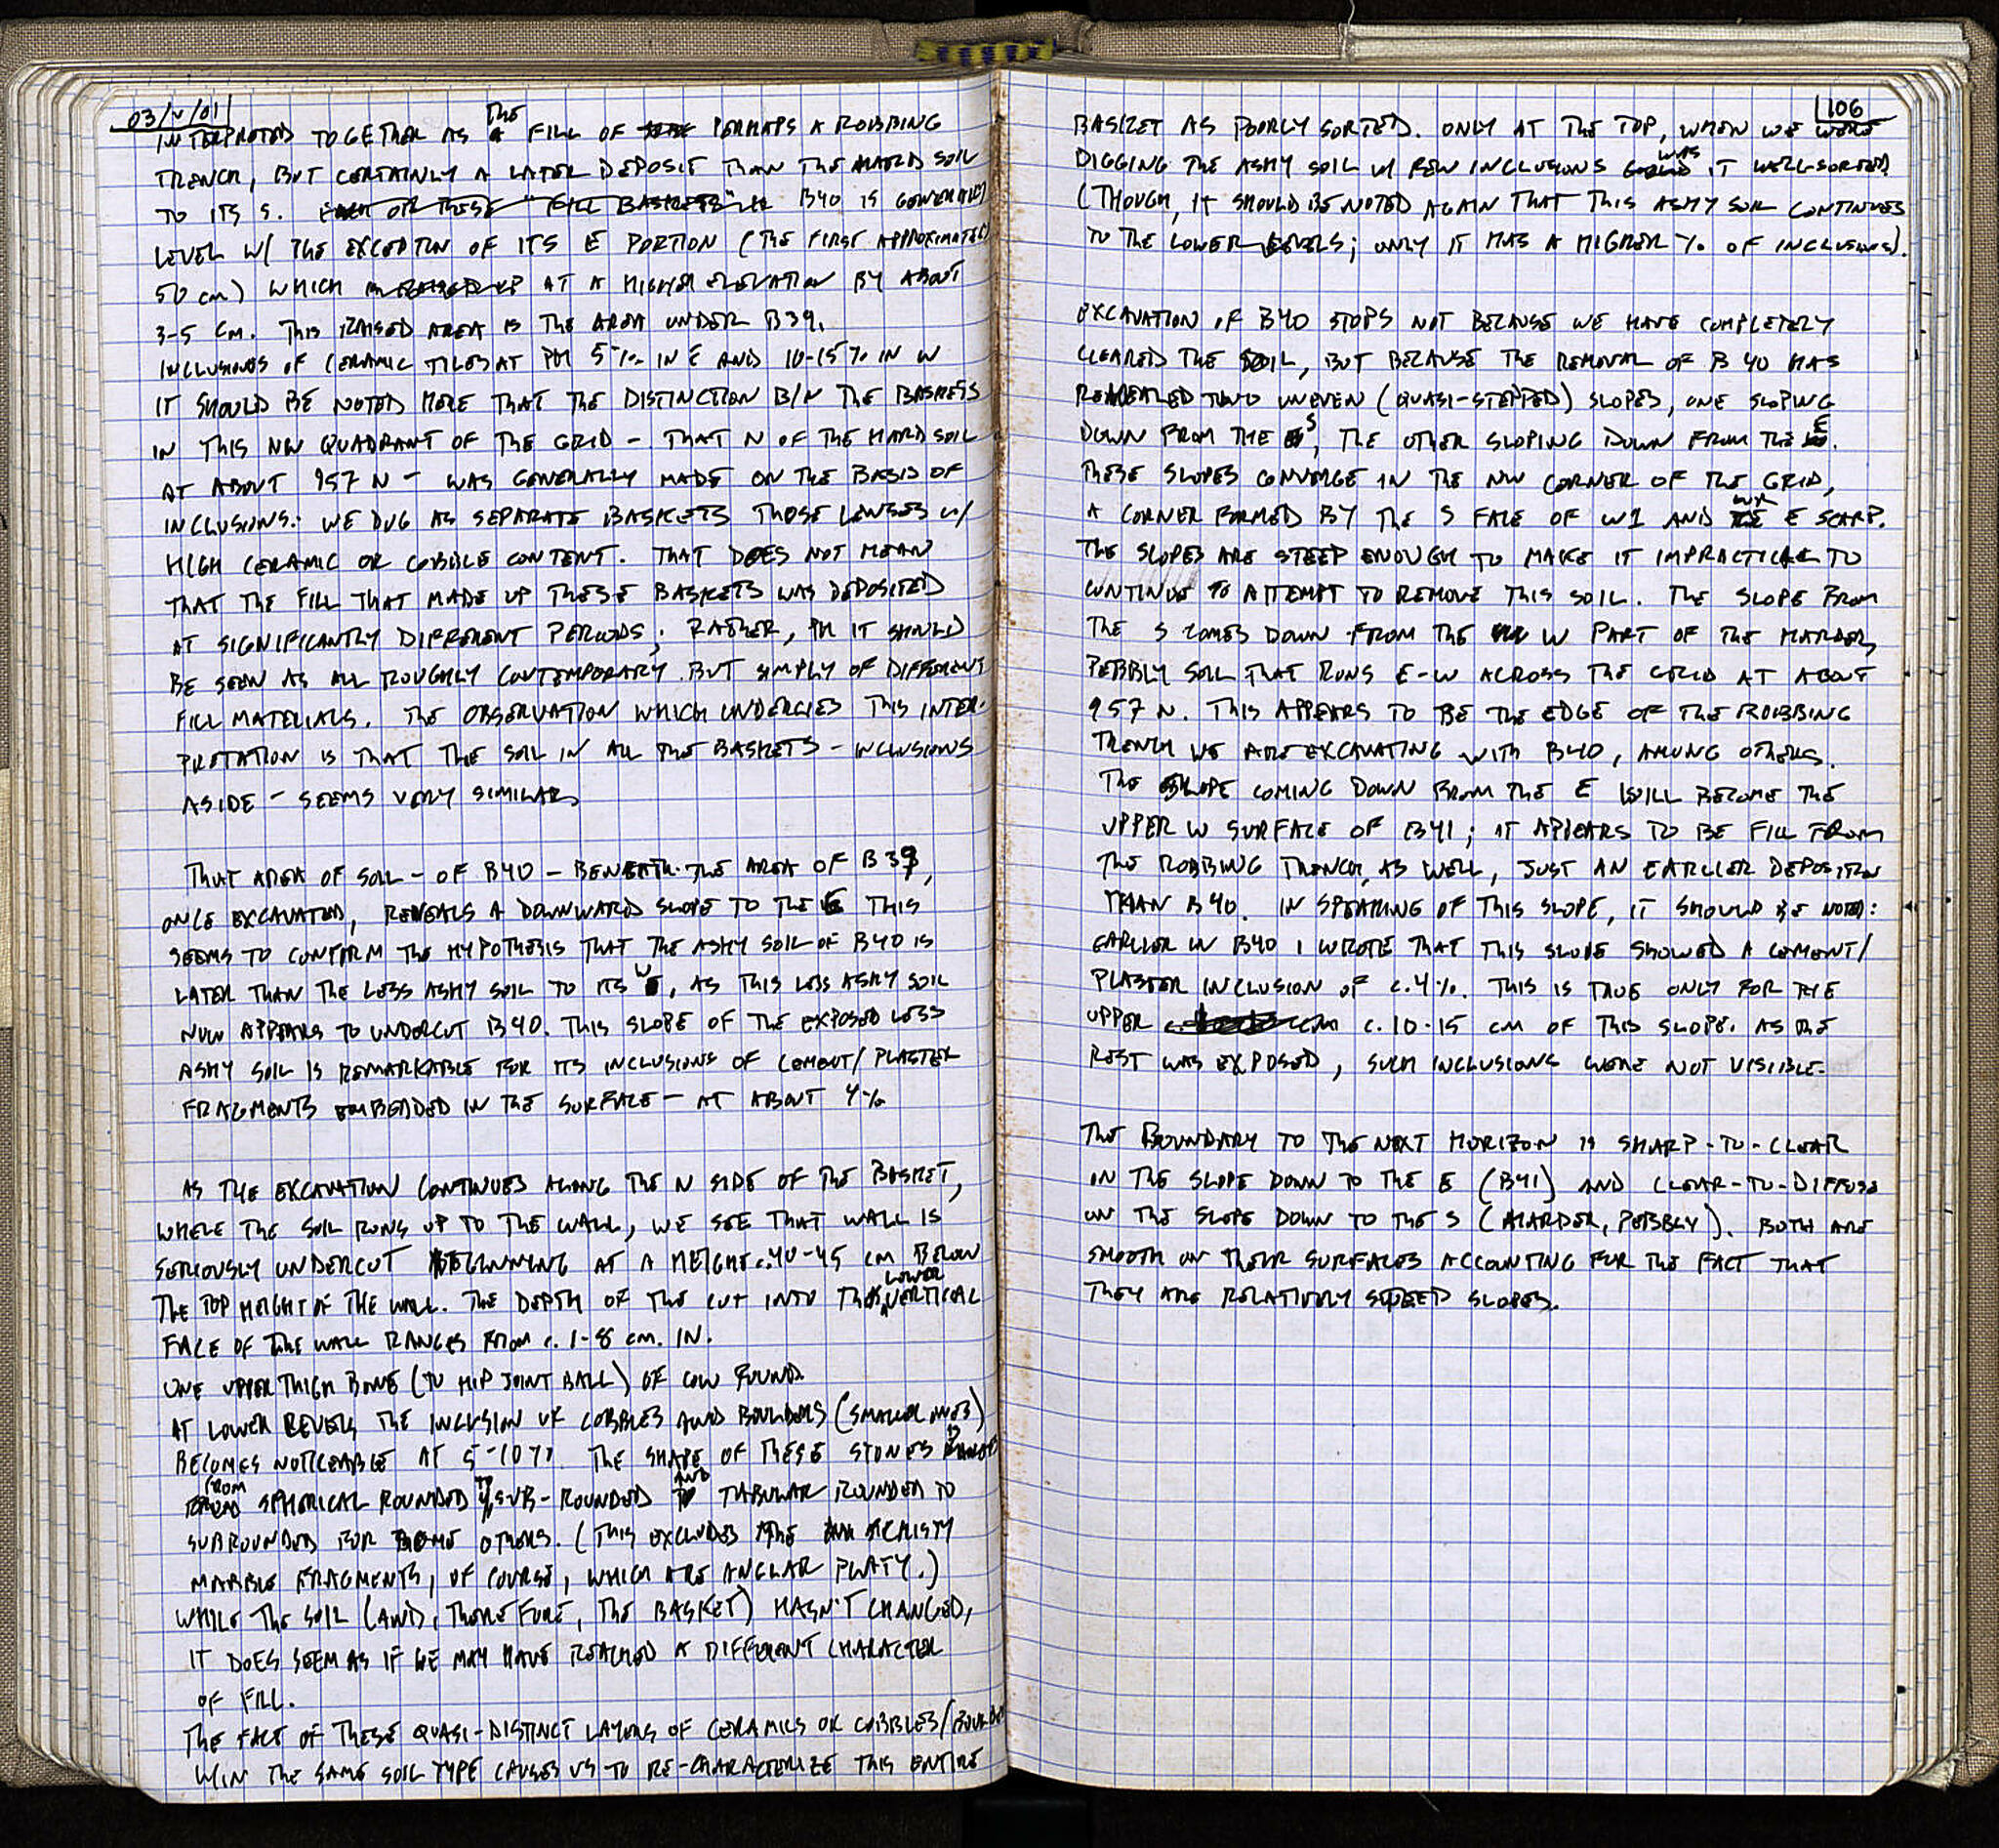 03/V/01
INTERPRETED TOGETHER AS THE FILL OF PERHAPS A ROBBING
TRENCH, BUT CERTAINLY A LATER DEPOSIT THAN THE HARD SOIL
TO ITS S. EACH OF THESE "FILL BASKETS" B40 IS GENERALLY
LEVEL W/ THE EXCEPTION OF ITS E PORTION (THE FIRST APPROXIMATELY
50 cm) WHICH AT A HIGHER ELEVATION BY ABOUT
3-5 cm. THIS RAISED AREA IS THE AREA UNDER B39.
INCLUSIONS OF CERAMIC TILES AT 5% IN E AND 10-15% IN W
IT SHOULD BE NOTED HERE THAT THE DISTINCTION B/N THE BASKETS
IN THIS NW QUADRANT OF THE GRID - THAT N OF THE HARD SOIL
AT ABOUT 957 N - WAS GENERALLY MADE ON THE BASIS OF
INCLUSIONS: WE DUG AS SEPARATE BASKETS THOSE LENSES W/
HIGH CERAMIC OR COBBLE CONTENT. THAT DOES NOT MEAN
THAT THE FILL THAT MADE UP THESE BASKETS WAS DEPOSITED
AT SIGNIFICANTLY DIFFERENT PERIODS; RATHER, IT SHOULD
BE SEEN AS ALL ROUGHLY CONTEMPORARY BUT SIMPLY OF DIFFERENT
FILL MATERIALS. THE OBSERVATION WHICH UNDERLIES THIS INTER-
PRETATION IS THAT THE SOIL IN ALL THE BASKETS - INCLUSIONS
ASIDE - SEEMS VERY SIMILAR.
THAT AREA OF SOIL - OF B40 - BENEATH THE AREA OF B39,
ONCE EXCAVATED, REVEALS A DOWNWARD SLOPE TO THE E THIS
SEEMS TO CONFIRM THE HYPOTHESIS THAT THE ASHY SOIL OF B40 IS
LATER THAN THE LESS ASHY SOIL TO ITS W, AS THIS LESS ASHY SOIL
NOW APPEARS TO UNDERCUT B40. THIS SLOPE OF THE EXPOSED LESS
ASHY SOIL IS REMARKABLE FOR ITS INCLUSIONS OF CEMENT/PLASTER
FRAGMENTS EMBEDDED IN THE SURFACE - AT ABOUT 4%
AS THE EXCAVATION CONTINUES ALONG THE N SIDE OF THE BASKET,
WHERE THE SOIL RUNS UP TO THE WALL, WE SEE THAT WALL IS
SERIOUSLY UNDERCUT BEGINNING AT A HEIGHT c. 40-45 cm BELOW
THE TOP HEIGHT OF THE WALL. THE DEPTH OF THE CUT INTO THE LOWER VERTICAL
FACE OF THE WALL RANGES FROM c. 1-8 cm. IN.
ONE UPPER THIGH BONE (TO HIP JOINT BALL) OF COW FOUND.
AT LOWER LEVELS THE INCLUSION OF COBBLES AND BOULDERS (SMALLER ONES)
BECOMES NOTICEABLE AT 5-10%. THE SHAPE OF THESE STONES IS
FROM SPHERICAL ROUNDED TO SUB-ROUNDED AND TABULAR ROUNDED TO
SUBROUNDED FOR SOME OTHERS. (THIS EXCLUDES THE SCHISTY
MARBLE FRAGMENTS, OF COURSE, WHICH ARE ANGLAR PLATY.)
WHILE THE SOIL (AND, THEREFORE, THE BASKET) HASN'T CHANGED,
IT DOES SEEM AS IF WE MAY HAVE REACHED A DIFFERENT CHARACTER
OF FILL.
THE FACT OF THESE QUASI-DISTINCT LAYERS OF CERAMICS OR COBBLES/BOULDERS
W/IN THE SAME SOIL TYPE CAUSES US TO RE-CHARACTERIZE THIS ENTIRE
106
BASKET AS POORLY SORTED. ONLY AT THE TOP, WHEN WE WERE
DIGGING THE ASHY SOIL W/ FEW INCLUSIONS WAS IT WELL-SORTED
(THOUGH, IT SHOULD BE NOTED AGAIN THAT THIS ASHY SOIL CONTINUES
TO THE LOWER LEVELS; ONLY IT HAS A HIGHER % OF INCLUSIONS).
EXCAVATION OF B40 STOPS NOT BECAUSE WE HAVE COMPLETELY
CLEARED THE SOIL, BUT BECAUSE THE REMOVAL OF B40 HAS
REVEALED TWO UNEVEN (QUASI-STEPPED) SLOPES, ONE SLOPING
DOWN FROM THE S, THE OTHER SLOPING DOWN FROM THE E.
THESE SLOPES CONVERGE IN THE NW CORNER OF THE GRID,
A CORNER FORMED BY THE S FACE OF W1 AND E SCARP.
THE SLOPES ARE STEEP ENOUGH TO MAKE IT IMPRACTICAL TO
CONTINUE TO ATTEMPT TO REMOVE THIS SOIL. THE SLOPE FROM
THE S COMES DOWN FROM THE W PART OF THE HARDER,
PEBBLY SOIL THAT RUNS E-W ACROSS THE GRID AT ABOUT
957 N. THIS APPEARS TO BE THE EDGE OF THE ROBBING
TRENCH WE ARE EXCAVATING WITH B40, AMONG OTHERS.
THE SLOPE COMING DOWN FROM THE E WILL BECOME THE
UPPER W SURFACE OF B41; IT APPEARS TO BE FILL FROM
THE ROBBING TRENCH, AS WELL, JUST AN EARLIER DEPOSITION
THAN B40. IN SPEAKING OF THIS SLOPE, IT SHOULD BE NOTED:
EARLIER IN B40 I WROTE THAT THIS SLOPE SHOWED A CEMENT/
PLASTER INCLUSION OF c. 4%. THIS IS TRUE ONLY FOR THE
UPPER c. 10-15 cm OF THIS SLOPE. AS THE
REST WAS EXPOSED, SUCH INCLUSIONS WERE NOT VISIBLE.
THE BOUNDARY TO THE NEXT HORIZON IS SHARP-TO-CLEAR
ON THE SLOPE DOWN TO THE E (B41) AND CLEAR-TO-DIFFUSE
ON THE SLOPE DOWN TO THE S (HARDER, PEBBLY). BOTH ARE
SMOOTH ON THEIR SURFACES ACCOUNTING FOR THE FACT THAT
THEY ARE RELATIVELY STEEP SLOPES.